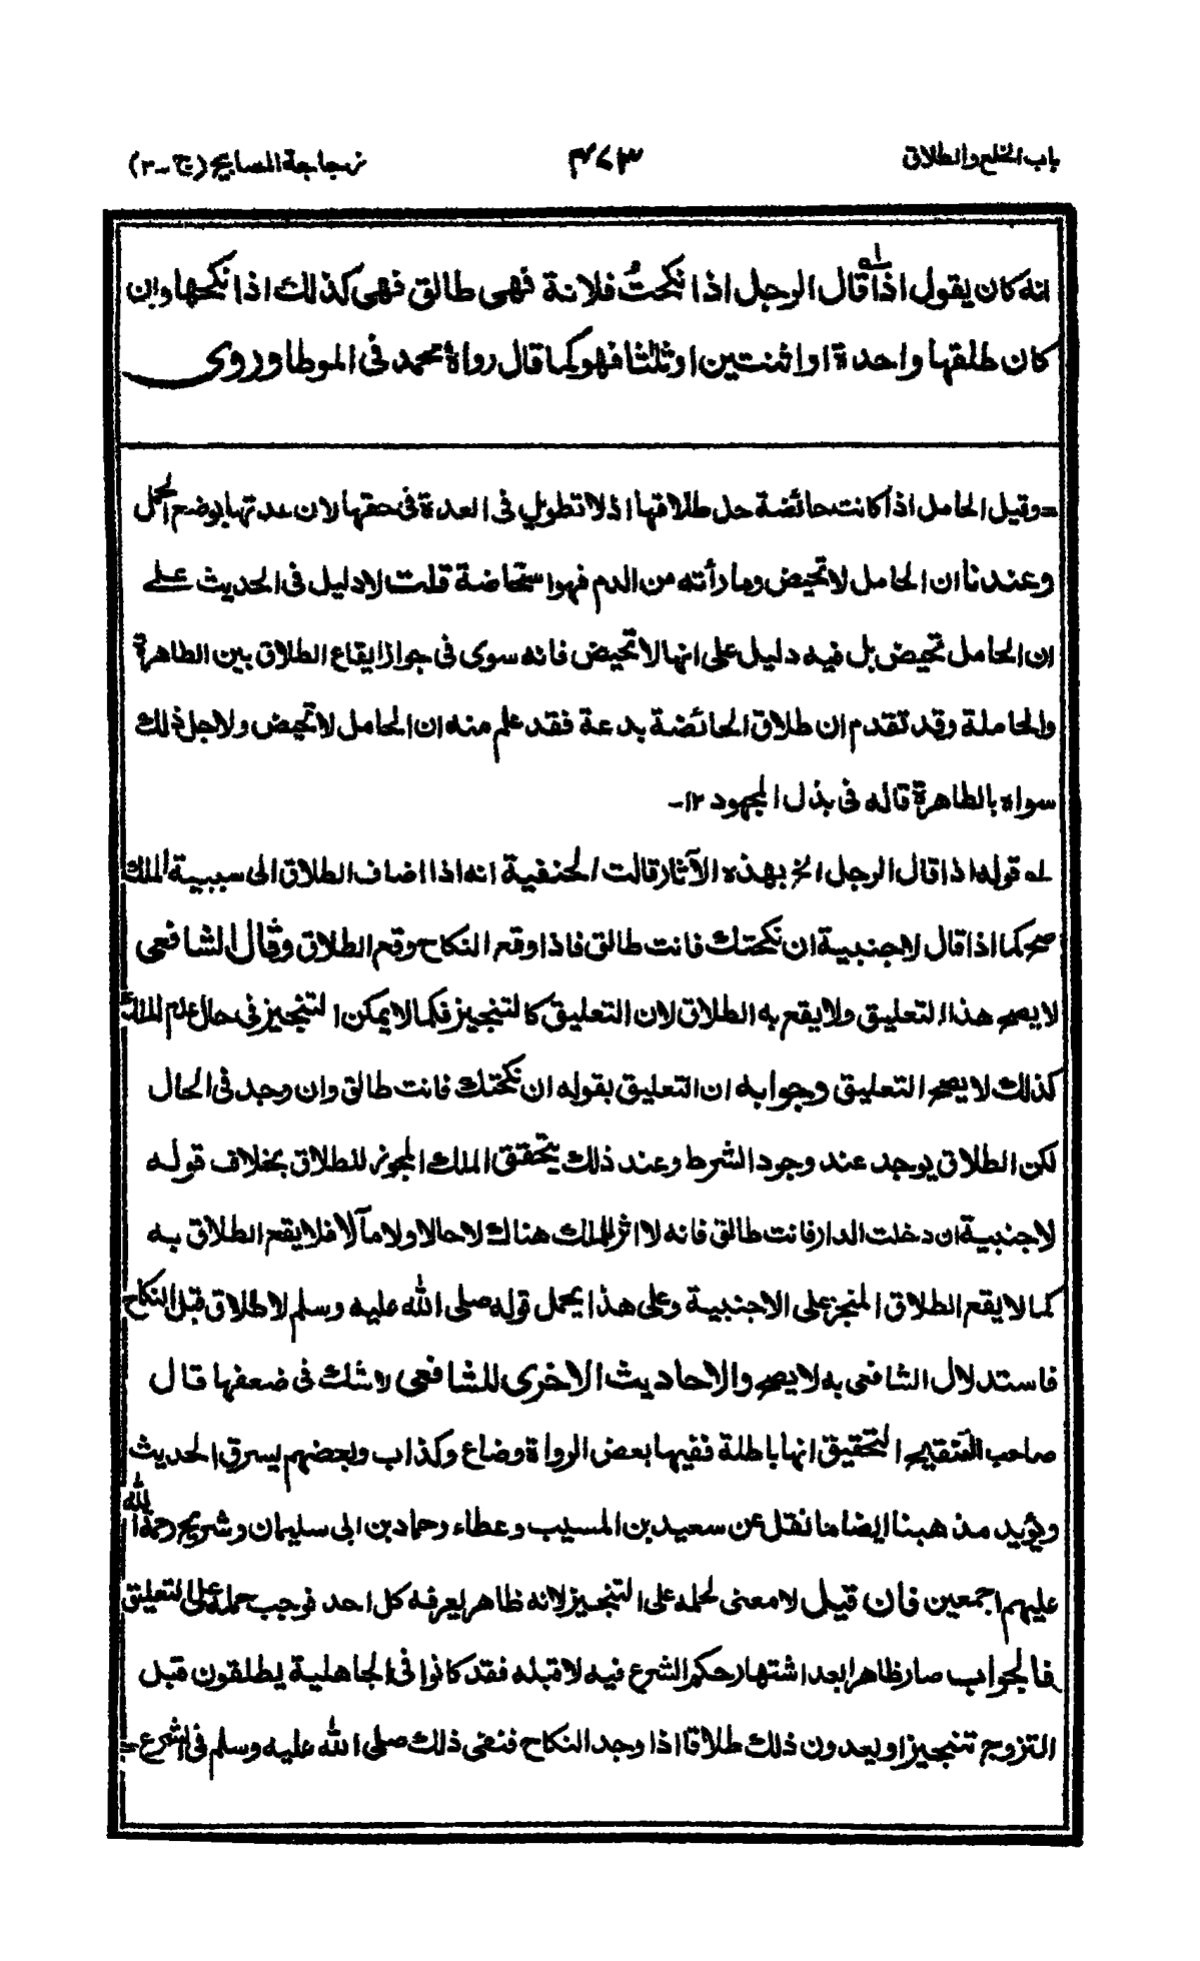 باب الخلع والطلاق
۴۷۳
زجاجة المصابيح (ج-۳)
انه كان يقول اذا قال الرجل اذا نكحتُ فلانة فهى طالق فهى كذلك اذا نكحها وان
كان طلقها واحدة او اثنتين او ثلثا فهو كما قال رواه محمد فى الموطا وروى
=وقيل الحامل اذا كانت حائضة حل طلاقها اذ لا تطويل فى العدة فى حقها لان عدتها بوضع الحمل
وعندنا ان الحامل لا تحيض وما رأته من الدم فهو استحاضة قلت لا دليل فى الحديث على
ان الحامل تحيض بل فيه دليل على انها لا تحيض فانه سوى فى جواز ايقاع الطلاق بين الطاهرة
والحاملة وقد تقدم ان طلاق الحائضة بدعة فقد علم منه ان الحامل لا تحيض ولاجل ذلك
سواه بالطاهرة قاله فى بذل المجهود ۱۲-
له قوله اذا قال الرجل الخ بهذه الآثار قالت الحنفية انه اذا اضاف الطلاق الى سببية الملك
صح كما اذا قال لاجنبية ان نكحتك فانت طالق فاذا وقع النكاح وقع الطلاق وقال الشافعى
لا يصح هذا التعليق ولا يقع به الطلاق لان التعليق كالتنجيز فكما لا يمكن التنجيز فى حال عدم الملك
كذلك لا يصح التعليق وجوابه ان التعليق بقوله ان نكحتك فانت طالق وان وجد فى الحال
لكن الطلاق يوجد عند وجود الشرط وعند ذلك يتحقق الملك المجوز للطلاق بخلاف قوله
لاجنبية ان دخلت الدار فانت طالق فانه لا اثر للملك هناك لا حالا ولا مآلا فلا يقع الطلاق به
كما لا يقع الطلاق المنجز على الاجنبية وعلى هذا يحمل قوله صلى الله عليه وسلم لا طلاق قبل النكاح
فاستدلال الشافعى به لا يصح والاحاديث الاخرى للشافعى لا شك فى ضعفها قال
صاحب التنقيح التحقيق انها باطلة ففيها بعض الرواة وضاع وكذاب وبعضهم يسرق الحديث
ويؤيد مذهبنا ايضا ما نقل عن سعيد بن المسيب وعطاء وحماد بن ابى سليمان وشريح رحمة الله
عليهم اجمعين فان قيل لا معنى لحمله على التنجيز لانه ظاهر يعرفه كل احد فوجب حمله على التعليق
فالجواب صار ظاهرا بعد اشتهار حكم الشرع فيه لا قبله فقد كانوا فى الجاهلية يطلقون قبل
التزوج تنجيزا ويعدون ذلك طلاقا اذا وجد النكاح فنفى ذلك صلى الله عليه وسلم فى الشرع=